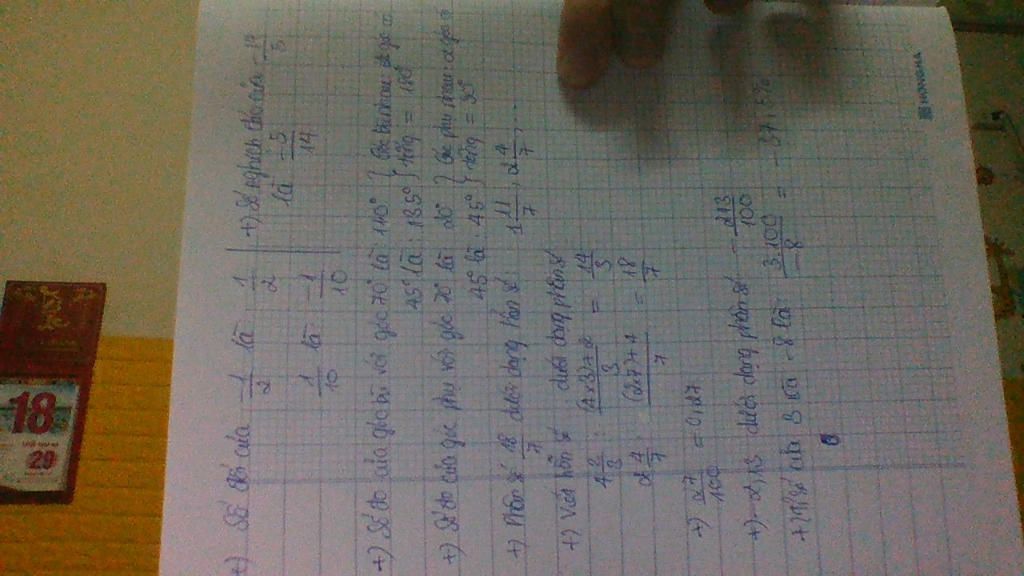 +) Số đối của -1/2 là 1/2
1/10 là -1/10
+) Số nghịch đảo của -14/5
là -5/14
+) Số đo của góc bù với góc 70° là 110°
45° là: 135°
} Góc bù nhau
tổng = 180°
+) Số đo của góc phụ với góc 70° là 20°
45° là: 45°
} Góc phụ nhau
tổng = 90°
+) Phân số 18/7 dưới dạng hỗn số: 1 11/7, 2 4/7, ...
+) Viết hỗn số dưới dạng phân số
4 2/3 : (4×3)+2/3 = 14/3
2 4/7 : (2×7)+4/7 = 18/7
+) 27/100 = 0,27
+) -2,13 dưới dạng phân số -213/100
+) Tỉ số của 3 và -8 là 3.100/-8 = -37,5%
HONG HA
18
29